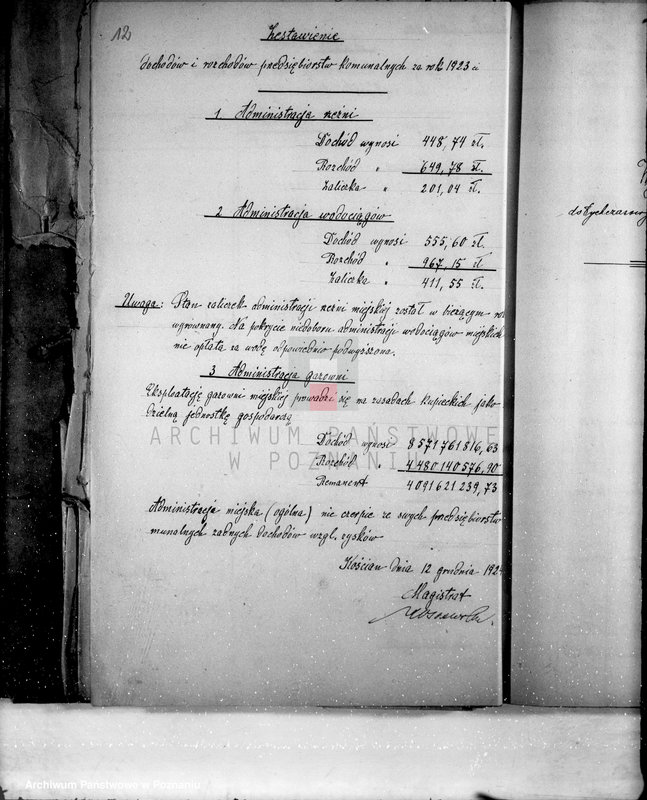 12
Zestawienie
dochodów i rozchodów przedsiębiorstw komunalnych za rok 1923 ci
1. Administracja rzeźni
Dochód wynosi 448,74 zł.
Rozchód " 649,78 zł.
Zaliczka " 201,04 zł.
2 Administracja wodociągów
Dochód wynosi 555,60 zł.
Rozchód " 967,15 zł
Zaliczka " 411,55 zł.
Uwaga: Stan zaliczek administracji rzeźni miejskiej został w bieżącym
wyrównany. Na pokrycie niedoboru administracji wodociągów miejskich
nie opłata za wodę odpowiednio podwyższona.
3 Administracja gazowni
Eksploatację gazowni miejskiej prowadzi się na zasadach kupieckich jako
dzielną jednostkę gospodarczą
Dochód wynosi 8571761816,63
Rozchód " 4480140576,90
Remanent 4091621239,73
Administracja miejska (ogólna) nie czerpie ze swych przedsiębiorstw
munalnych żadnych dochodów wzgl. zysków
Kościan dnia 12 grudnia 192
Magistrat
dotychczasowy
ARCHIWUM PAŃSTWOWE
W POZNANIU
Archiwum Państwowe w Poznaniu